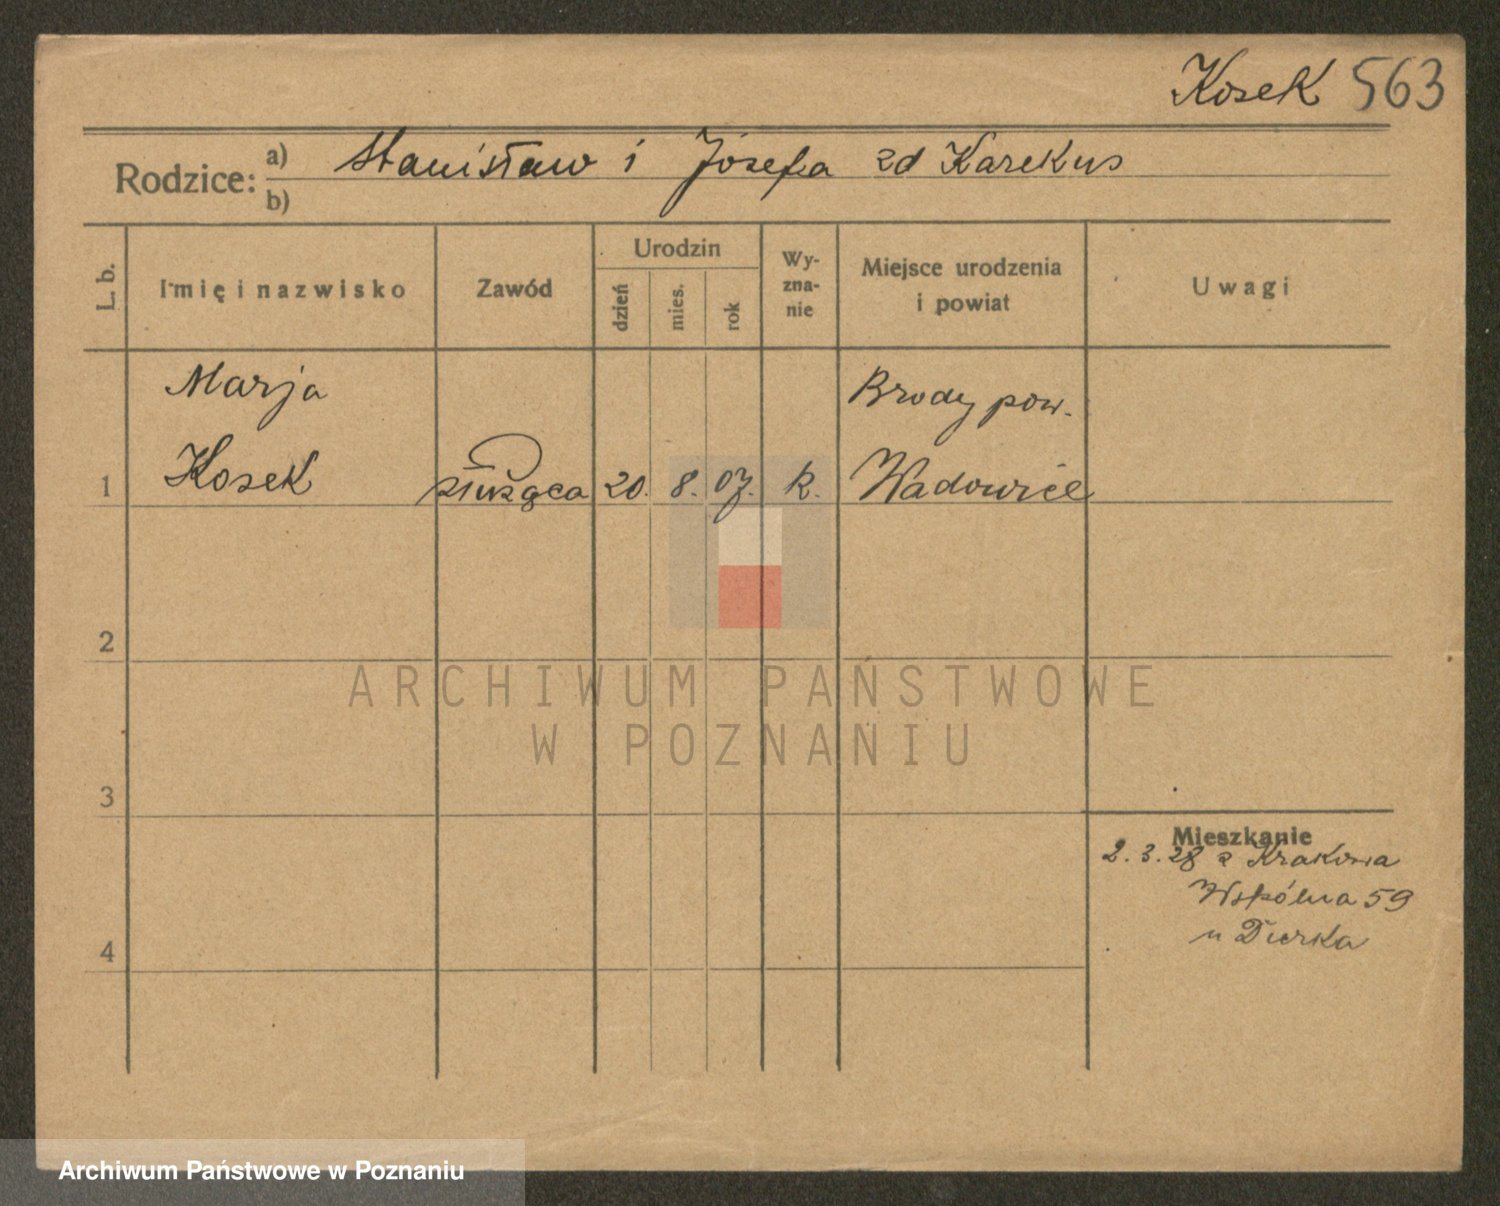 Kosek 563
Rodzice: a) Stanisław i Józefa zd Karekus
b)
L. b. Imię i nazwisko Zawód Urodzin dzień mies. rok Wy-zna-nie Miejsce urodzenia i powiat Uwagi
Marja Brody pow.
1 Kosek służąca 20. 8. 07. k. Wadowice
2
ARCHIWUM PAŃSTWOWE
W POZNANIU
3
Mieszkanie
2.3.28 z Krakowa
Wspólna 59
4 u
Archiwum Państwowe w Poznaniu